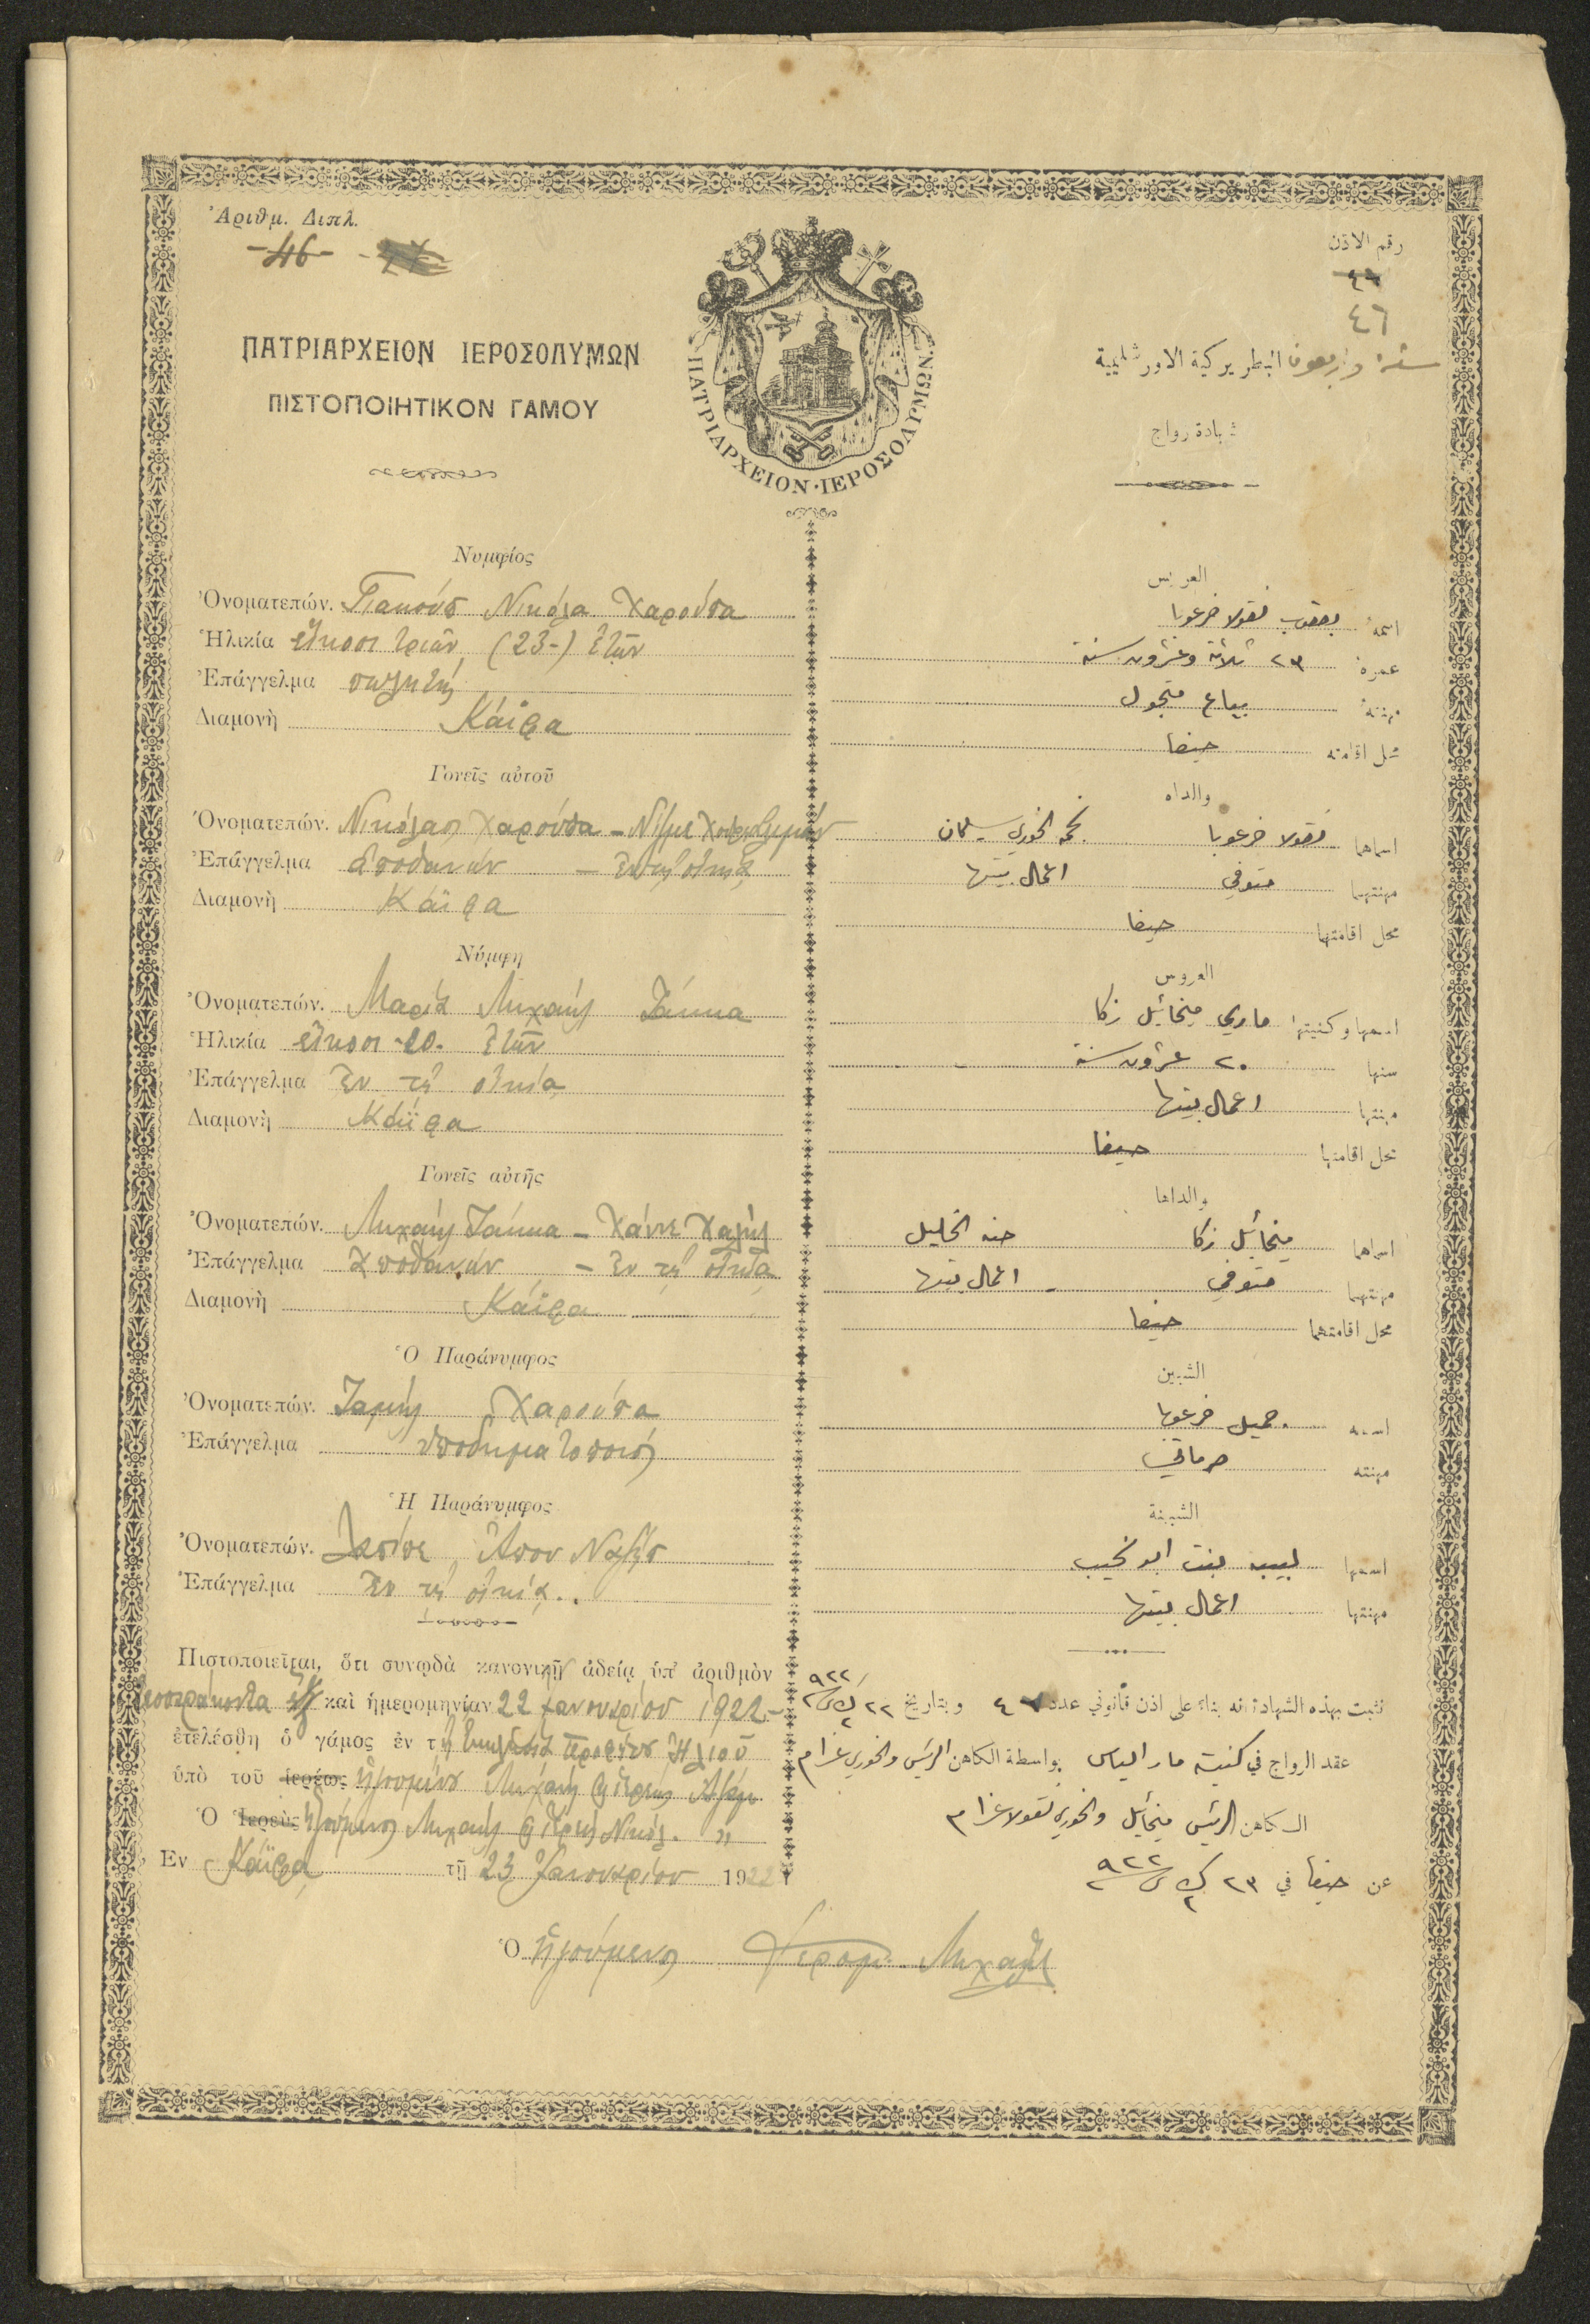 Ἀριθμ. Διπλ.
-46-
ΠΑΤΡΙΑΡΧΕΙΟΝ ΙΕΡΟΣΟΛΥΜΩΝ
ΠΙΣΤΟΠΟΙΗΤΙΚΟΝ ΓΑΜΟΥ
ΠΑΤΡΙΑΡΧΕΙΟΝ·ΙΕΡΟΣΟΛΥΜΩΝ
رقم الاذن
٤٦
ستة واربعون البطريركية الاورشليمية
شهادة زواج
Νυμφίος
Ὀνοματεπών. Γιακούπ Νικόλα Χαρούπα
Ἡλικία εἴκοσι τριῶν (23-) ἐτῶν
Ἐπάγγελμα πωλητής
Διαμονὴ Κάϊφα
Γονεῖς αὐτοῦ
Ὀνοματεπών. Νικόλαος Χαρούπα -
Ἐπάγγελμα ἀποθανών - ἐν τῇ οἰκίᾳ
Διαμονὴ Κάϊφα
Νύμφη
Ὀνοματεπών. Μαρία Μιχαήλ Ζάκκα
Ἡλικία εἴκοσι -20- ἐτῶν
Ἐπάγγελμα ἐν τῇ οἰκίᾳ
Διαμονὴ Κάϊφα
Γονεῖς αὐτῆς
Ὀνοματεπών. Μιχαήλ Ζάκκα - Χάννε Χαλήλ
Ἐπάγγελμα ἀποθανών - ἐν τῇ οἰκίᾳ
Διαμονὴ Κάϊφα
Ὁ Παράνυμφος
Ὀνοματεπών. Ζαμήλ Χαρούπα
Ἐπάγγελμα ὑποδηματοποιός
Ἡ Παράνυμφος
Ὀνοματεπών. Λεπίπε Ἀπου Ναζήπ
Ἐπάγγελμα ἐν τῇ οἰκίᾳ..
Πιστοποιεῖται, ὅτι συνῳδὰ κανονικῇ ἀδείᾳ ὑπ' ἀριθμὸν
τεσσεράκοντα ἕξ καὶ ἡμερομηνίαν 22 Ἰανουαρίου 1922-
ἐτελέσθη ὁ γάμος ἐν τῇ Ἐκκλησίᾳ Προφήτου Ἠλιοῦ
ὑπὸ τοῦ ἱερέως ἡγουμένου Μιχαήλ
Ὁ Ἱερεὺς ἡγούμενος Μιχαήλ Νικόλ. "
Ἐν Κάϊφᾳ τῇ 23 Ἰανουαρίου 1922
العريس
اسمهُ يعقوب نقولا خرعوبا
عمره ٢٣ ثلاثة وعشرون سنة
مهنته بياع متجول
محل اقامته حيفا
والداه
اسماهما نقولا خرعوبا نجمه الخوري سليمان
مهنتهما متوفي اعمال بيتها
محل اقامتهما حيفا
العروس
اسمها وكنيتها ماري ميخائيل زكا
سنها ٢٠ عشرون سنة
مهنتها اعمال بيتها
محل اقامتها حيفا
والداها
اسماهما ميخائيل زكا حنه الخليل
مهنتهما متوفي - اعمال بيتها
محل اقامتهما حيفا
الشبين
اسمه جميل خرعوبا
مهنته صرماتي
الشبينة
اسمها لبيبه بنت ابو نجيب
مهنتها اعمال بيتها
نثبت بهذه الشهادة انه بناءً على اذن قانوني عدد ٤٦ وبتاريخ ٢٢ ك٢ س ٩٢٢
عقد الزواج في كنيسة مار الياس بواسطة الكاهن الريس والخوري عزام
الكاهن الريس ميخائيل والخوري نقولا عزام
عن حيفا في ٢٣ ك٢ س ٩٢٢
Ὁ ἡγούμενος Ἱερομ. Μιχαήλ